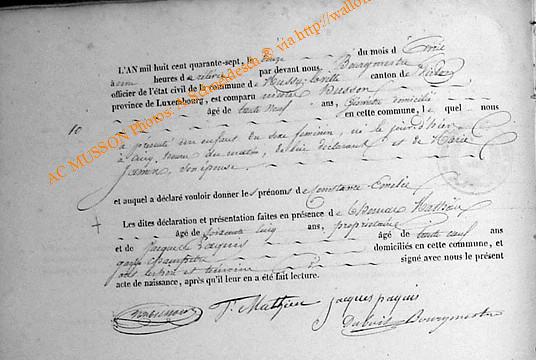 L'AN mil huit cent quarante-sept, le du mois d
heures de par devant nous Bourgmestre
officier de l'état civil de la commune de Mussy-la-ville canton de Virton
province de Luxembourg, est comparu Nicolas Musson
âgé de trente neuf ans, domicilié
en cette commune, le quel nous
10
a présenté un enfant du sexe feminin, né le jour d'hier
à cinq heures du matin, de lui déclarant et de Marie
son épouse
et auquel a déclaré vouloir donner les prénoms de Constance Emelie
Les dites déclaration et présentation faites en présence de Thomas Mathieu
âgé de soixante cinq ans, propriétaire
et de Jacques Paquis âgé de trente neuf ans
garde Champêtre domiciliés en cette commune, et
signé avec nous le présent
acte de naissance, après qu'il leur en a été fait lecture.
T. Mathieu jacques paquis
Bourgmestre
AC MUSSON Photos: ® via http://wallon